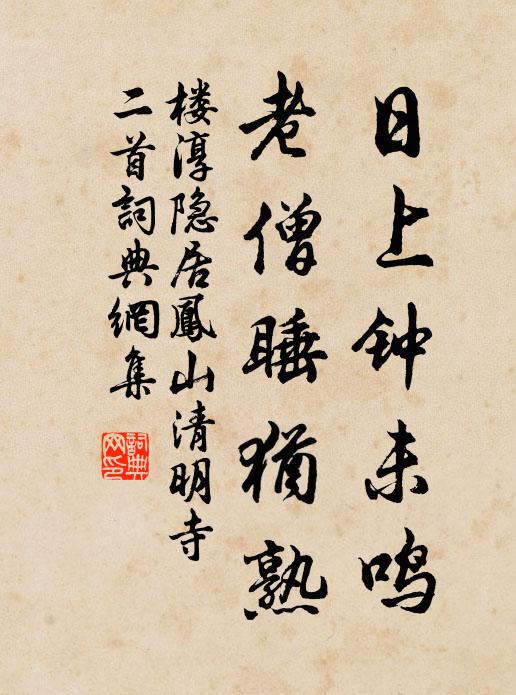 日上钟未鸣
老僧睡犹熟
楼淳隐居鳳山清明寺
二首詞典網集
詞典
网印